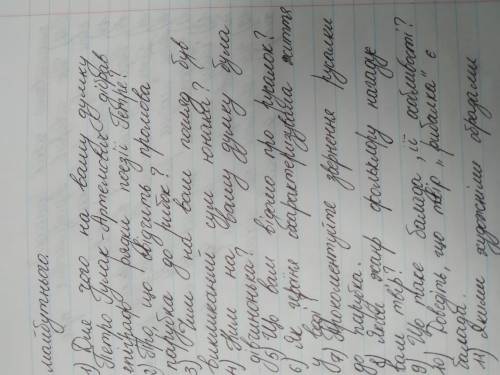 майбутнього.
1) Для чого на вашу думку
Петро Гулак-Артемович дібрав
епіграф рядки поезії Гетте?
2) Про, що свідчить промова
парубка до рибок?
3) Чим на ваш погляд був
викликаний сум юнака?
4) Ким на вашу думку була
дівчинонька?
5) Що вам відомо про русалок?
6) Як героїня охарактеризувала життя
у воді
7) Прокоментуйте звернення русалки
до парубка.
8) Який жанр фольклору нагадує
вам твір?
9) Що таке балада, її особливості?
10) Доведіть, що твір „рибалка" є
балада.
11) Якими художніми образами